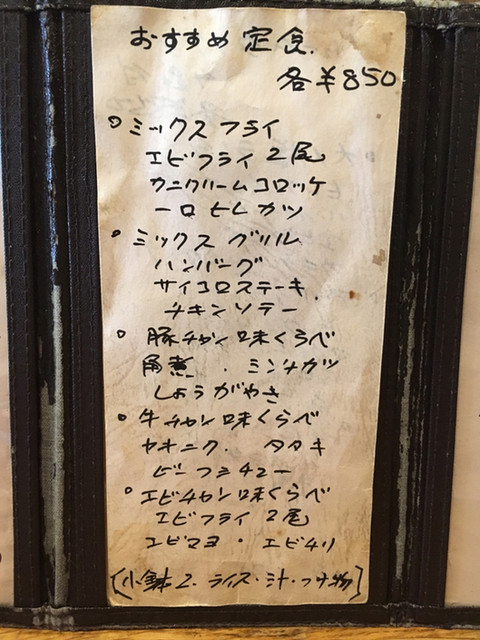 おすすめ定食.
各¥850
○ミックスフライ
エビフライ2尾
カニクリームコロッケ
一口ヒレカツ
○ミックスグリル
ハンバーグ
サイコロステーキ
チキンソテー
○豚チャン味くらべ
角煮・ミンチカツ
しょうがやき
○牛チャン味くらべ
ヤキニク.タタキ
ビーフシチュー
○エビチャン味くらべ
エビフライ2尾
エビマヨ・エビチリ
(小鉢2.ライス・汁・つけ物)